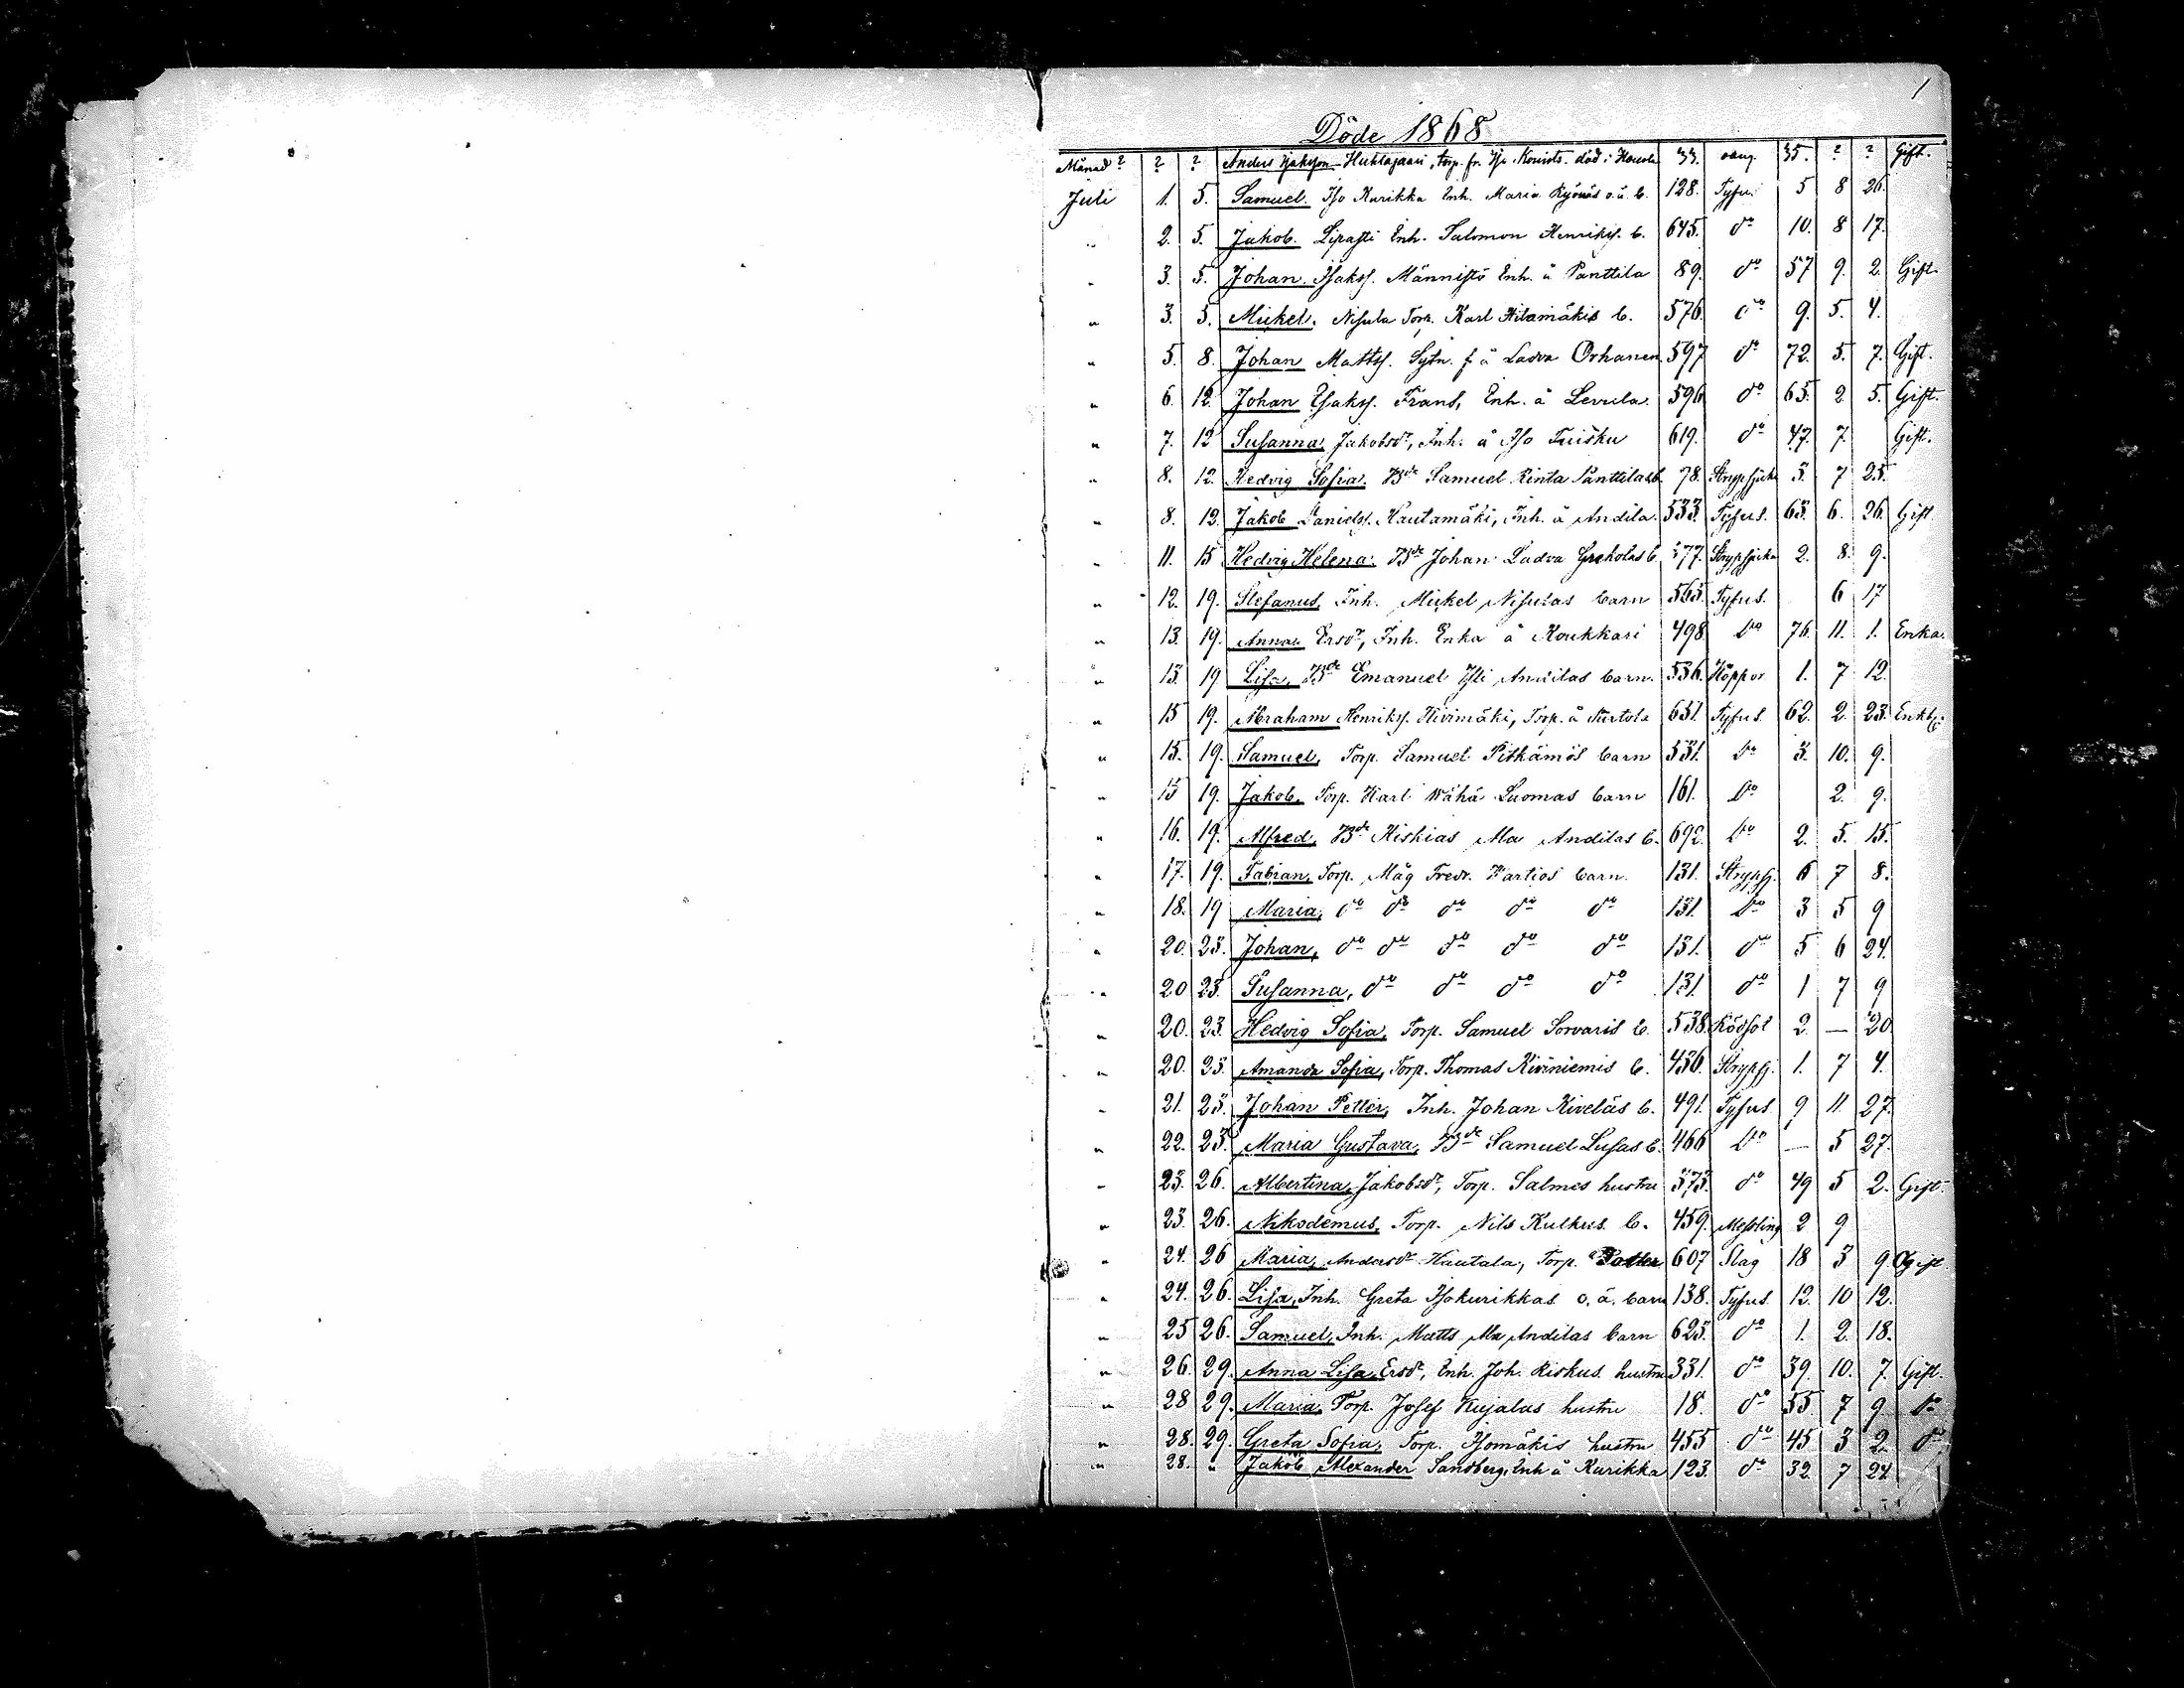 1
Döde 1868
Månad ? ? ? Anders Huhtajaari, torp. fr. död i 33. 35. ? ? Gift.
Juli 1. 5. Samuel. Iso Kurikka Enh. Maria o.ä. b. 128. Tyfus 5 8 26.
" 2. 5. Jakob. Lipasti Enh. Salomon Henrikss. b. 645. do 10. 8 17.
" 3. 5. Johan. Isakss. Männistö Enh. å Panttila 89. do 57 9. 2. Gift.
" 3. 5. Mickel. Nisula Torp. Karl b. 576. do 9. 5. 4.
" 5. 8. Johan Mattss. Sytn. f å Ladva Orhanen 597 do 72. 5. 7. Gift.
" 6. 12. Johan Isakss. Frans, Enh. å Levula. 596 do 65. 2 5. Gift.
" 7. 12 Susanna. Jakobsdr, Inh. å Iso Tuisku 619. do 47. 7. Gift.
" 8. 12. Hedvig Sofia. Bde Samuel Rinta Panttilas b. 78. Strypsjuka 3. 7 25.
" 8. 12. Jakob Daniels. Hautamäki, Inh. å Andila. 533. Tyfus. 63. 6. 26. Gift
" 11. 15 Hedvig Helena. Bde Johan Ladva b. 577. Strypsjuka 2. 8. 9.
" 12. 19. Stefanus, Inh. Mickel Nisulas barn 563. Tyfus. 6 17
" 13. 19. Anna Ersdr, Inh. Enka å Koukkari 498 Do 76. 11. 1. Enka.
" 13. 19 Lisa, Bde Emanuel Yli Andilas barn. 536. Koppor 1. 7 12.
" 15 19. Abraham Henrikss. Hivimäki, Torp. å Turtola 651. Tyfus. 62. 2. 23. Enkl:
" 15. 19. Samuel, Torp. Samuel Pitkämös barn 531. Do 3. 10. 9.
" 15 19. Jakob. Torp. Karl Wähä Luomas barn 161. Do 2. 9.
" 16. 19. Alfred, Bde Kiskias Ala Andilas b. 692. Do 2. 5. 15.
" 17. 19. Fabian, Torp. Måg Fredr. Kartios barn. 131. Strypsj. 6 7 8.
" 18. 19 Maria, do do do do do 131. Do 3 5 9
" 20. 23. Johan, do do do do do 131. do 5 6 24.
" 20 23. Susanna, do do do do 131. do 1 7 9
" 20. 23. Hedvig Sofia, Torp. Samuel Sorvaris b. 538. Rödsot 2. — 20
" 20. 23. Amanda Sofia, Torp. Thomas Kiviniemis b. 436. Strypsj. 1. 7 4.
" 21. 23. Johan Petter, Inh. Johan Kiveläs b. 491. Tyfus. 9 11. 27.
" 22. 23. Maria Gustava, Bde Samuel Lusas b. 466 Do — 5 27.
" 23. 26. Albertina, Jakobsdr, Torp. Salmes hustru 573. do 49 5 2. Gift.
" 23. 26. Nikodemus, Torp. Nils Kulkus. b. 459. Messling 2 9
" 24. 26 Maria, Andersdr Hautala, Torp. 607 Slag 18 3 9. Ogift.
" 24. 26. Lisa, Inh. Greta Isokurikkas o.ä. barn 138. Tyfus. 12. 10 12.
" 25 26. Samuel, Inh. Matts Ala Andilas barn 625. do 1. 2. 18.
" 26. 29. Anna Lisa Ersdr, Enh. Joh. Kiskus. hustru 331. do 39. 10. 7. Gift.
" 28 29. Maria, Torp. Josef Kujalas hustru 18. do 55. 7 9. Do
" 28. 29. Greta Sofia, Torp. Isomäkis hustru 455 do 45 3 2. do
" 28. " Jakob Alexander Sandberg, Enh å Kurikka 123. do 32. 7 24.